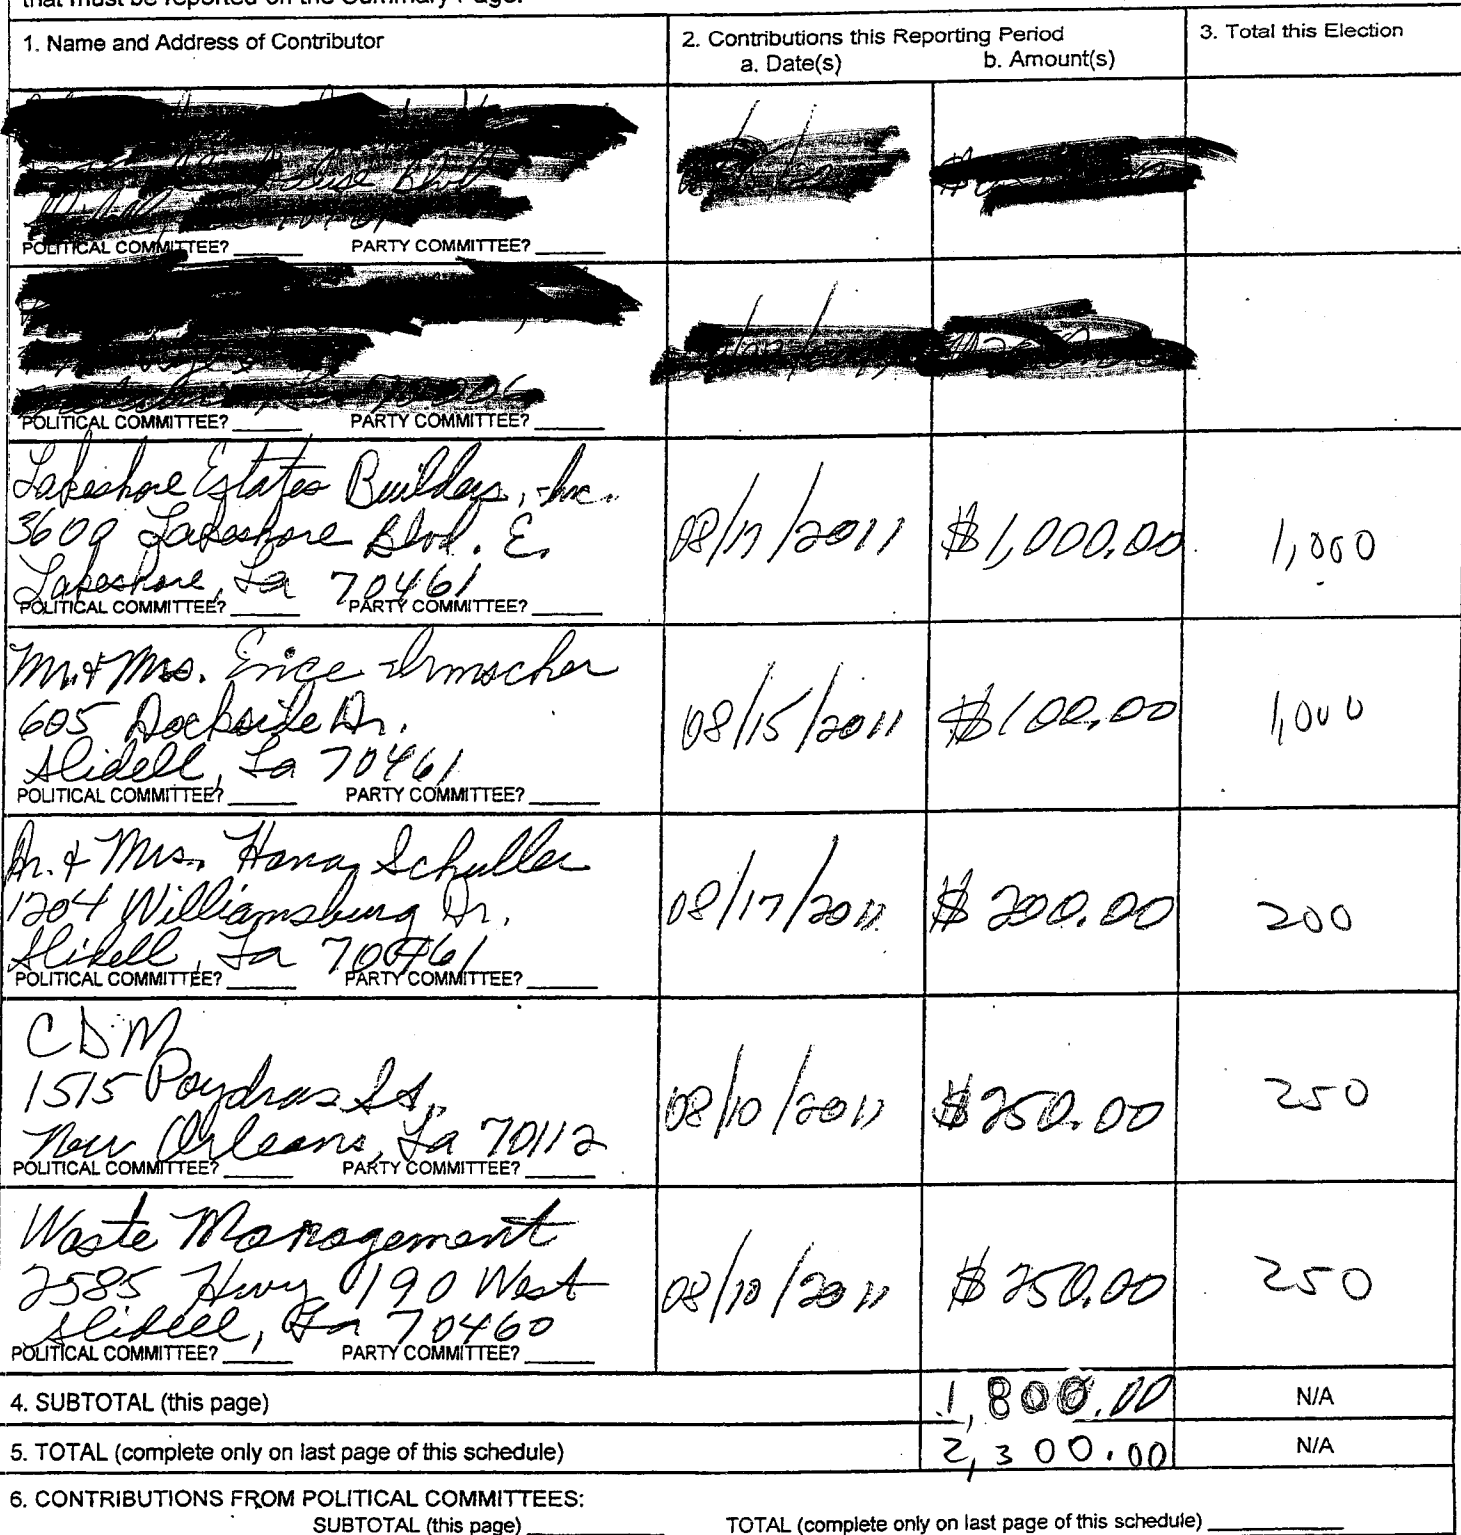 1. Name and Address of Contributor
2. Contributions this Reporting Period
a. Date(s) b. Amount(s)
3. Total this Election
POLITICAL COMMITTEE? ______ PARTY COMMITTEE? ______
POLITICAL COMMITTEE? ______ PARTY COMMITTEE? ______
Lakeshore Estates Builders, Inc.
3600 Lakeshore Blvd. E.
Lakeshore, La 70461
POLITICAL COMMITTEE? ______ PARTY COMMITTEE? ______
08/17/2011 $1,000.00 1,000
Mr. & Mrs. Erice Irmscher
605 Dockside Dr.
Slidell, La 70461
POLITICAL COMMITTEE? ______ PARTY COMMITTEE? ______
08/15/2011 $100.00 1,000
Dr. & Mrs. Schuller
1204 Williamsburg Dr.
Slidell, La 70461
POLITICAL COMMITTEE? ______ PARTY COMMITTEE? ______
08/17/2011 $200.00 200
CDM
1515 Poydras St.,
New Orleans, La 70112
POLITICAL COMMITTEE? ______ PARTY COMMITTEE? ______
08/10/2011 $250.00 250
Waste Management
2585 Hwy 190 West
Slidell, La 70460
POLITICAL COMMITTEE? ______ PARTY COMMITTEE? ______
08/10/2011 $250.00 250
4. SUBTOTAL (this page) 1,800.00 N/A
5. TOTAL (complete only on last page of this schedule) 2,300.00 N/A
6. CONTRIBUTIONS FROM POLITICAL COMMITTEES:
SUBTOTAL (this page) ______ TOTAL (complete only on last page of this schedule) ______